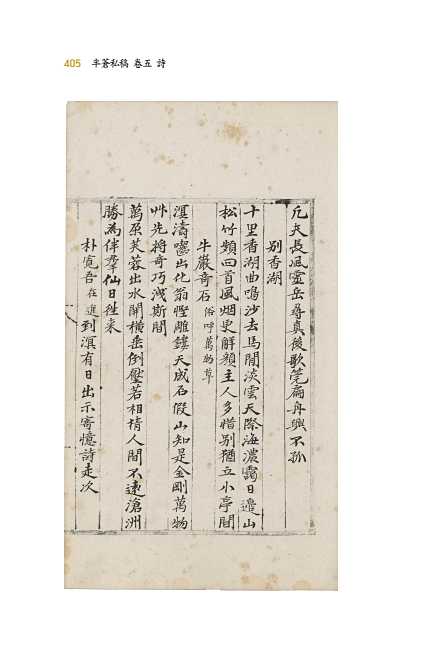 405 半蒼私稿 卷五 詩
凡夫長風靈岳尋真後歌罷扁舟興不孤
別香湖
十里香湖曲鳴沙去馬閒淡雲天際海濃靄日邊山
松竹頻回首風烟更解顏主人多惜別猶立小亭間
牛巖奇石俗呼萬物草
溟濤噓出化翁慳雕鏤天成石假山知是金剛萬物
艸先將奇巧洩斯間
萬朶芙蓉出水開橫岳倒壓若相猜人間不遠滄洲
勝為伴羣仙日往来
朴寬吾在進到溟有日出示寄憶詩走次